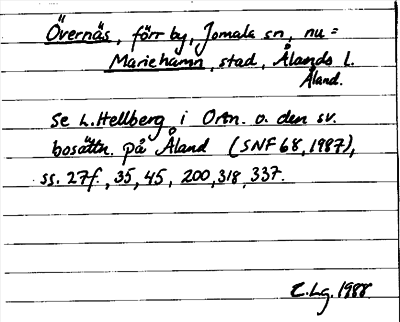 Övernäs, förr by, Jomala sn, nu =
Mariehamn, stad, Ålands l.
Åland.
Se L. Hellberg i Ortn. o. den sv.
bosättn. på Åland (SNF 68, 1987),
ss. 27f., 35, 45, 200, 318, 337.
L.Lg. 1988